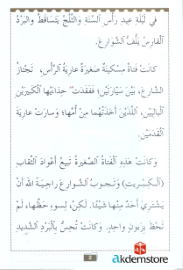 في لَيْلَةِ عِيدِ رَأْسِ السَّنَةِ وَالثَّلْجُ يَتَسَاقَطُ وَالبَرْدُ
القَارِسُ يَلُفُّ الشَّوَارِعَ.
كَانَتْ فَتَاةٌ مِسْكِينَةٌ صَغِيرَةٌ عَارِيَةُ الرَّأْسِ، تَجْتَازُ
الشَّارِعَ، بَيْنَ سَيَّارَتَيْنِ؛ فَفَقَدَتْ حِذَاءَيْهَا الكَبِيرَيْنِ
البَالِيَيْنِ، اللَّذَيْنِ أَخَذَتْهُمَا مِنْ أُمِّهَا؛ وَسَارَتْ عَارِيَةَ
القَدَمَيْنِ.
وَكَانَتْ هَذِهِ الفَتَاةُ الصَّغِيرَةُ تَبِيعُ أَعْوَادَ الثِّقَابِ
(الكِبْرِيتِ) وَتَجُوبُ الشَّوَارِعَ رَاجِيَةً اللهَ أَنْ
يَشْتَرِيَ أَحَدٌ مِنْهَا شَيْئًا. لَكِنْ لِسُوءِ حَظِّهَا، لَمْ
تَحْظَ بِزَبُونٍ وَاحِدٍ. وَكَانَتْ تُحِسُّ بِالْبَرْدِ الشَّدِيدِ
2
akdemstore